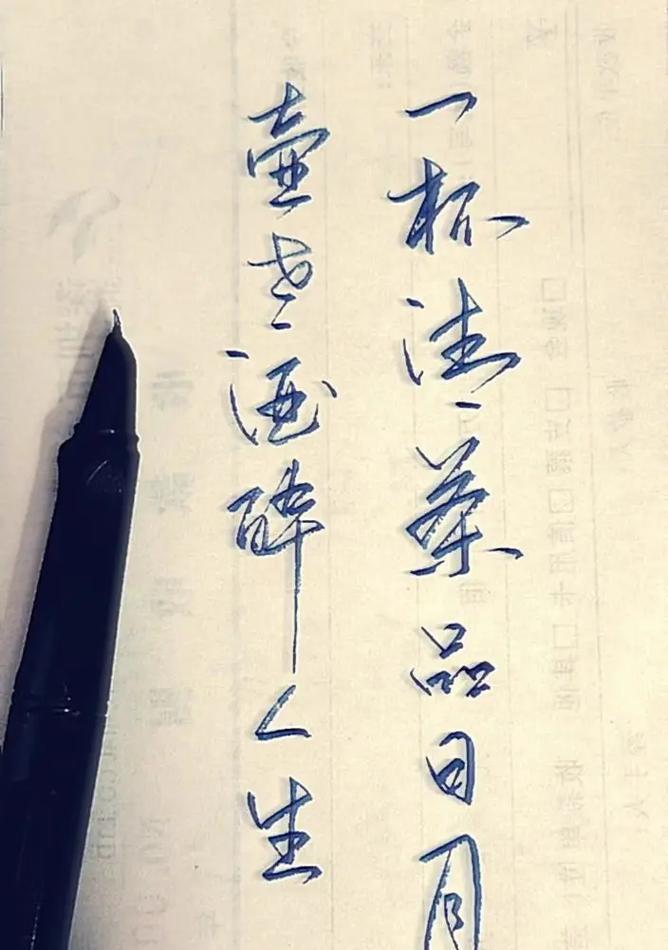 一杯清茶品日月
壺老酒醉人生